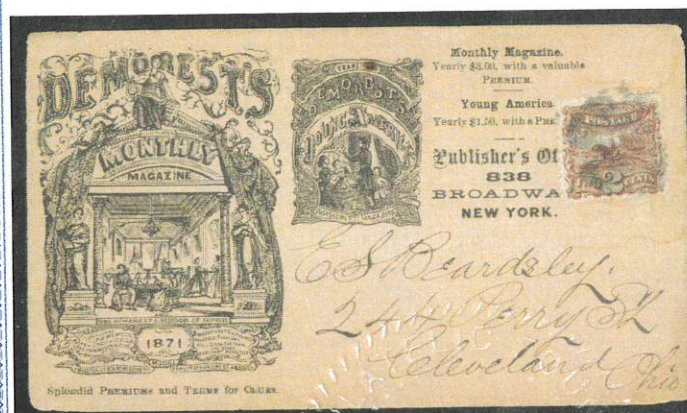 DEMOREST'S
MONTHLY
MAGAZINE
1871
Splendid PREMIUMS and TERMS for CLUBS.
YEARLY
DEMOREST'S
YOUNG AMERICA
Monthly Magazine.
Yearly $3.00, with a valuable
PREMIUM.
Young America
Yearly $1.50, with a PRE
Publisher's Of
838
BROADWA
NEW YORK.
2
E S Beardsley.
244 Perry St
Cleveland Ohio